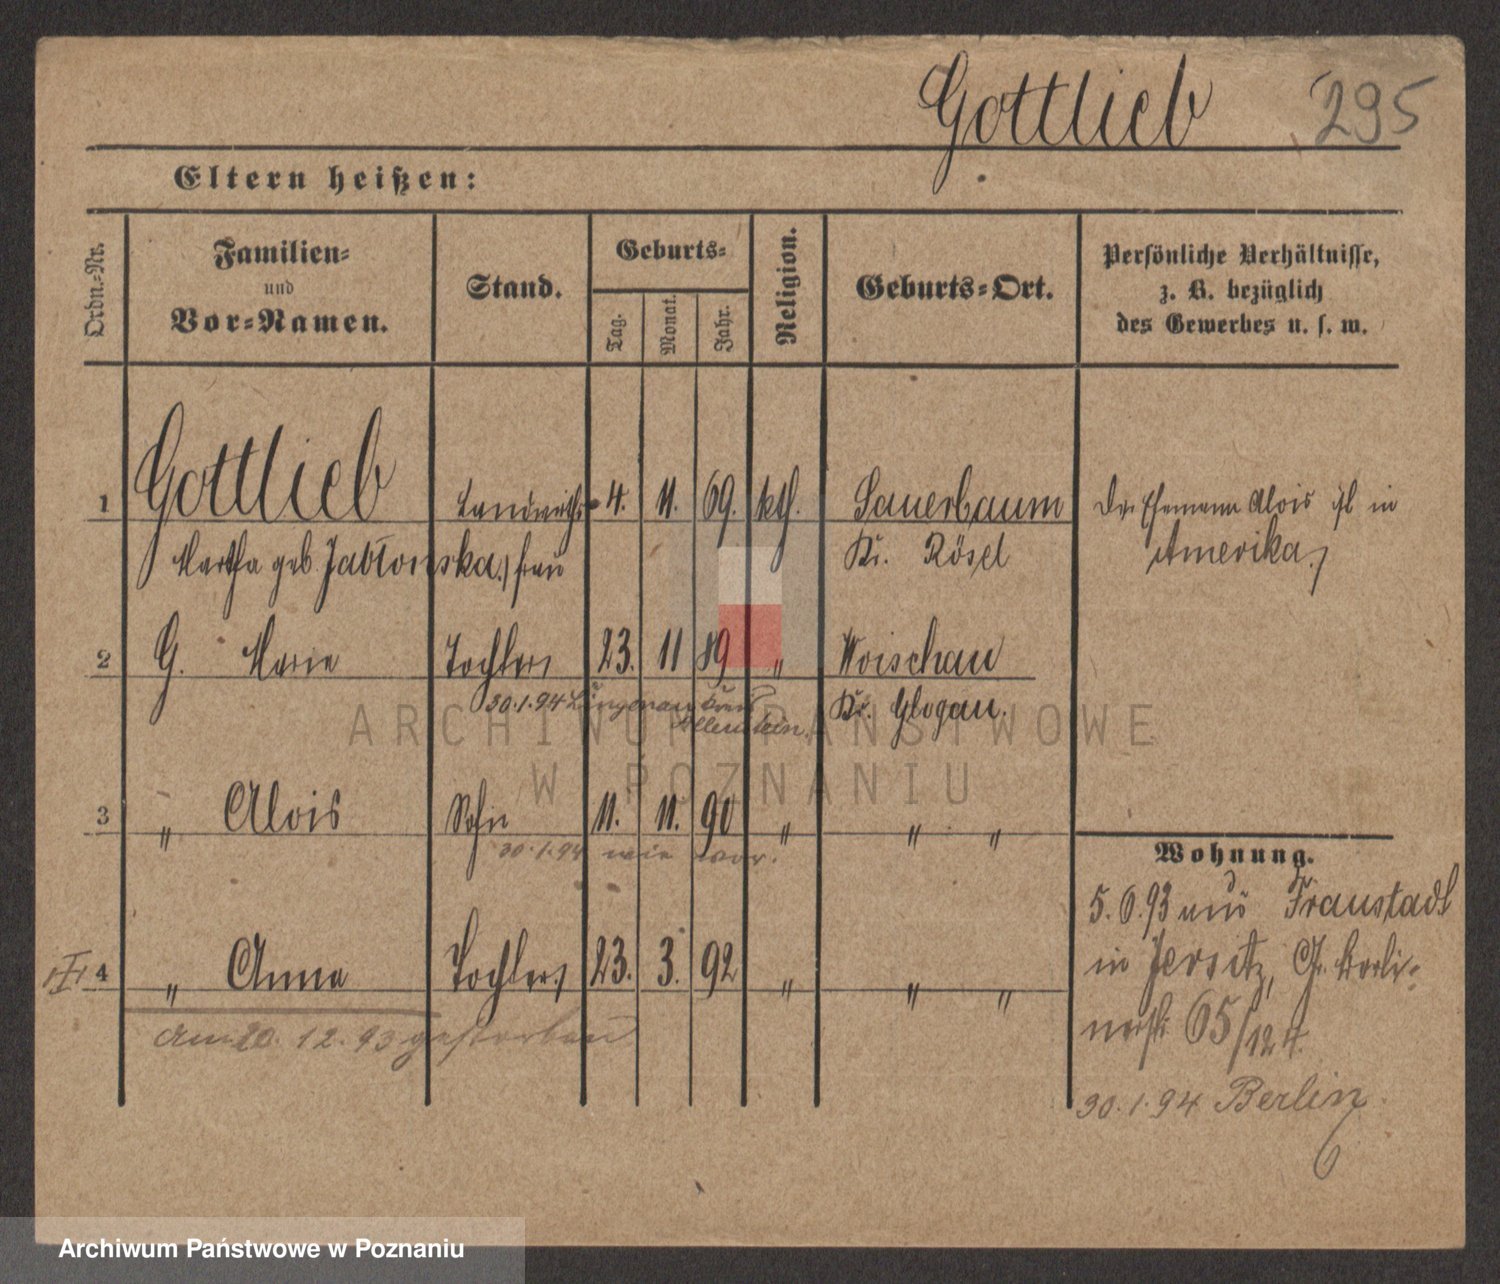 Gottlieb 295
Eltern heißen:
Ordn.-Nr.
Familien-
und
Vor-Namen.
Stand.
Geburts-
Tag.
Monat.
Jahr.
Religion.
Geburts-Ort.
Persönliche Verhältnisse,
z. B. bezüglich
des Gewerbes u. s. w.
1 Gottlieb Landwirths- 4. 11. 69. kth. Sauerbaum Der Ehemann Alois ist in
Martha geb. Jabłonska, frau Kr. Rösel Amerika.
2 G. Marie Tochter 23. 11 89 " Woischau
30.1.94 Kreis Allenstein. Kr. Glogau.
3 " Alois Sohn 11. 11. 90 " " "
30.1.94 wie vor.
Wohnung.
5.6.93 aus Fraustadt
in Jersitz,
65/12
4 " Anna Tochter 23. 3. 92 " " "
am 20.12.93 gestorben
30.1.94 Berlin
6
ARCHIWUM PAŃSTWOWE
W POZNANIU
Archiwum Państwowe w Poznaniu